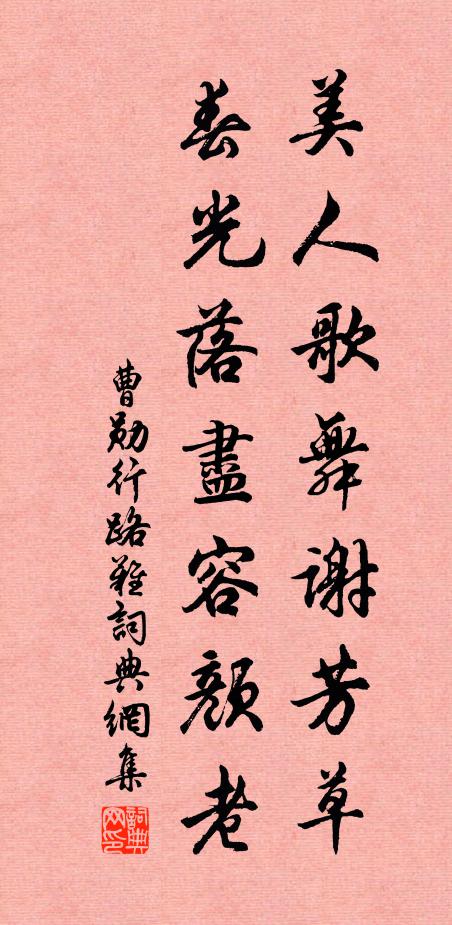 美人歌舞謝芳草
春光落盡容顏老
曹勛行路難詞典網集
詞典网印